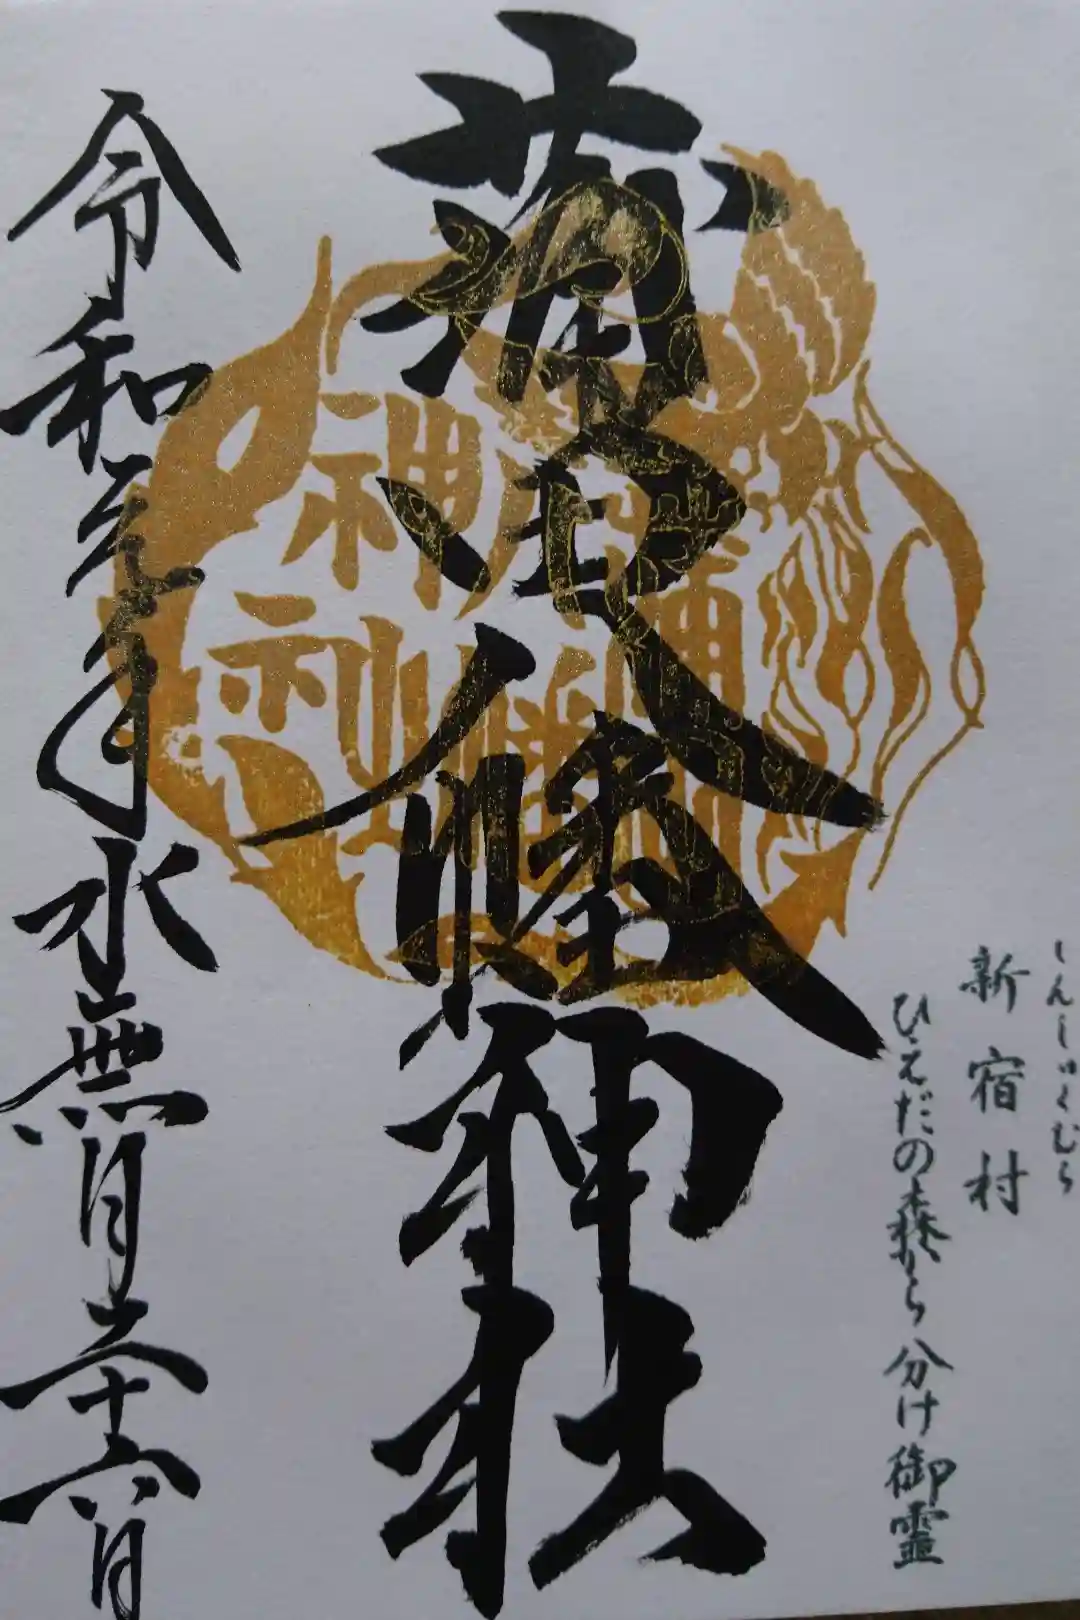 しんしゅくむら
新宿村
ひえだの森から分け御霊
蒲田八幡神社
神社
令和元年水無月二十六日